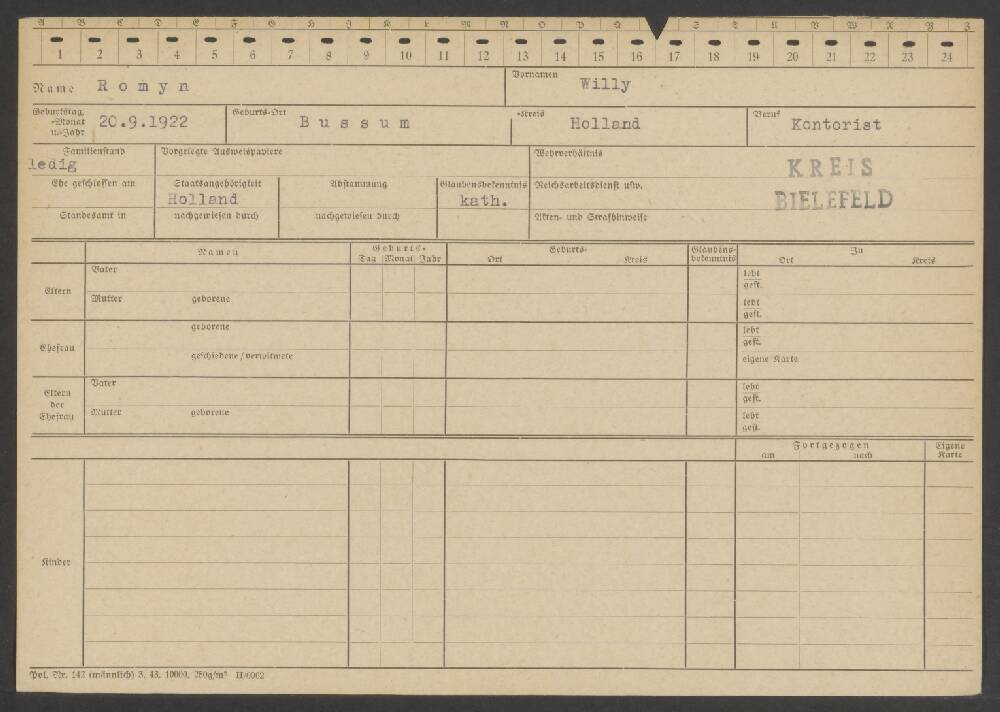 A B C D E F G H J K L M N O P Q S T U V W X Y Z
1 2 3 4 5 6 7 8 9 10 11 12 13 14 15 16 17 18 19 20 21 22 23 24
Name Romyn
Vornamen Willy
Geburtstag, -Monat u. -Jahr 20.9.1922
Geburts-Ort Bussum
-Kreis Holland
Beruf Kontorist
Familienstand ledig
Vorgelegte Ausweispapiere
Wehrverhältnis
KREIS
BIELEFELD
Ehe geschlossen am
Staatsangehörigkeit Holland
Abstammung
Glaubensbekenntnis kath.
Reichsarbeitsdienst usw.
Standesamt in
nachgewiesen durch
nachgewiesen durch
Akten- und Strafhinweise
Namen
Geburts-
Tag Monat Jahr
Geburts-
Ort Kreis
Glaubens-
bekenntnis
In
Ort Kreis
Eltern
Vater
lebt
gest.
Mutter geborene
lebt
gest.
Ehefrau
geborene
lebt
gest.
geschiedene/verwitwete
eigene Karte
Eltern
der
Ehefrau
Vater
lebt
gest.
Mutter geborene
lebt
gest.
Fortgezogen
am nach
Eigene
Karte
Kinder
Pol. Nr. 142 (männlich) 3. 43. 10000. 250g/m² II/0002